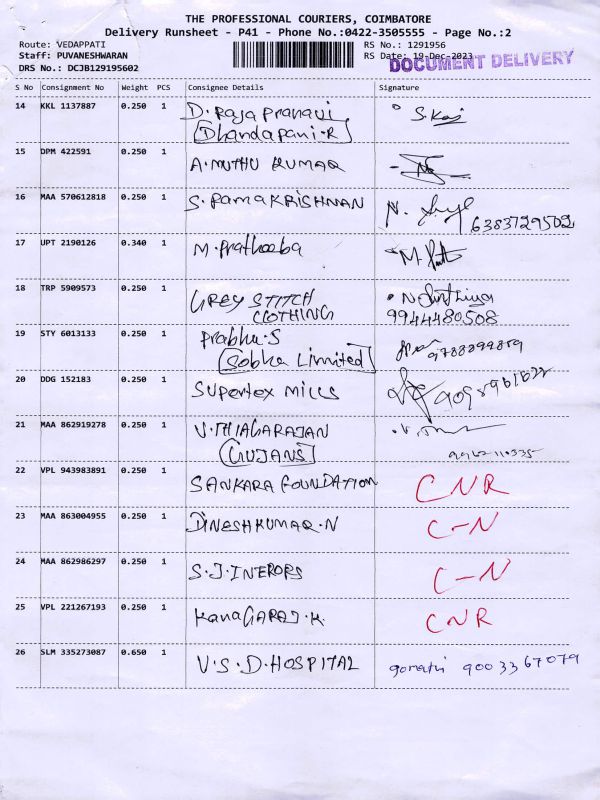 THE PROFESSIONAL COURIERS, COIMBATORE
Delivery Runsheet - P41 - Phone No.:0422-3505555 - Page No.:2
Route: VEDAPPATI RS No.: 1291956
Staff: PUVANESHWARAN RS Date: 19-Dec-2023
DOCUMENT DELIVERY
DRS No.: DCJB129195602
S No Consignment No Weight PCS Consignee Details Signature
14 KKL 1137887 0.250 1 D. Raja Pranavi S.Kaj
Dhandapani.R
15 DPM 422591 0.250 1 A. MUTHU KUMAR
16 MAA 570612818 0.250 1 S. RamaKRISHNAN N.
6383729502
17 UPT 2190126 0.340 1 M. Pratheeba M.
18 TRP 5909573 0.250 1 GREY STITCH N
CLOTHING 9944480508
19 STY 6013133 0.250 1 Prabhu.S
Sobha Limited
20 DDG 152183 0.250 1 Supertex Mills
21 MAA 862919278 0.250 1 V.THIAGARAJAN
(GUJANS)
22 VPL 943983891 0.250 1 SANKARA FOUNDATION CNR
23 MAA 863004955 0.250 1 DINESHKUMAR.N C-N
24 MAA 862986297 0.250 1 S.J.INTERORS C-N
25 VPL 221267193 0.250 1 KanaGARAJ.K. CNR
26 SLM 335273087 0.650 1 V.S.D.HOSPITAL gomathi 9003367079